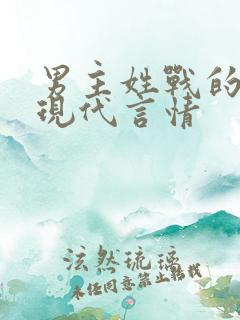 男主姓戰的
現代言情
泫然琉璃
未经同意禁止转载